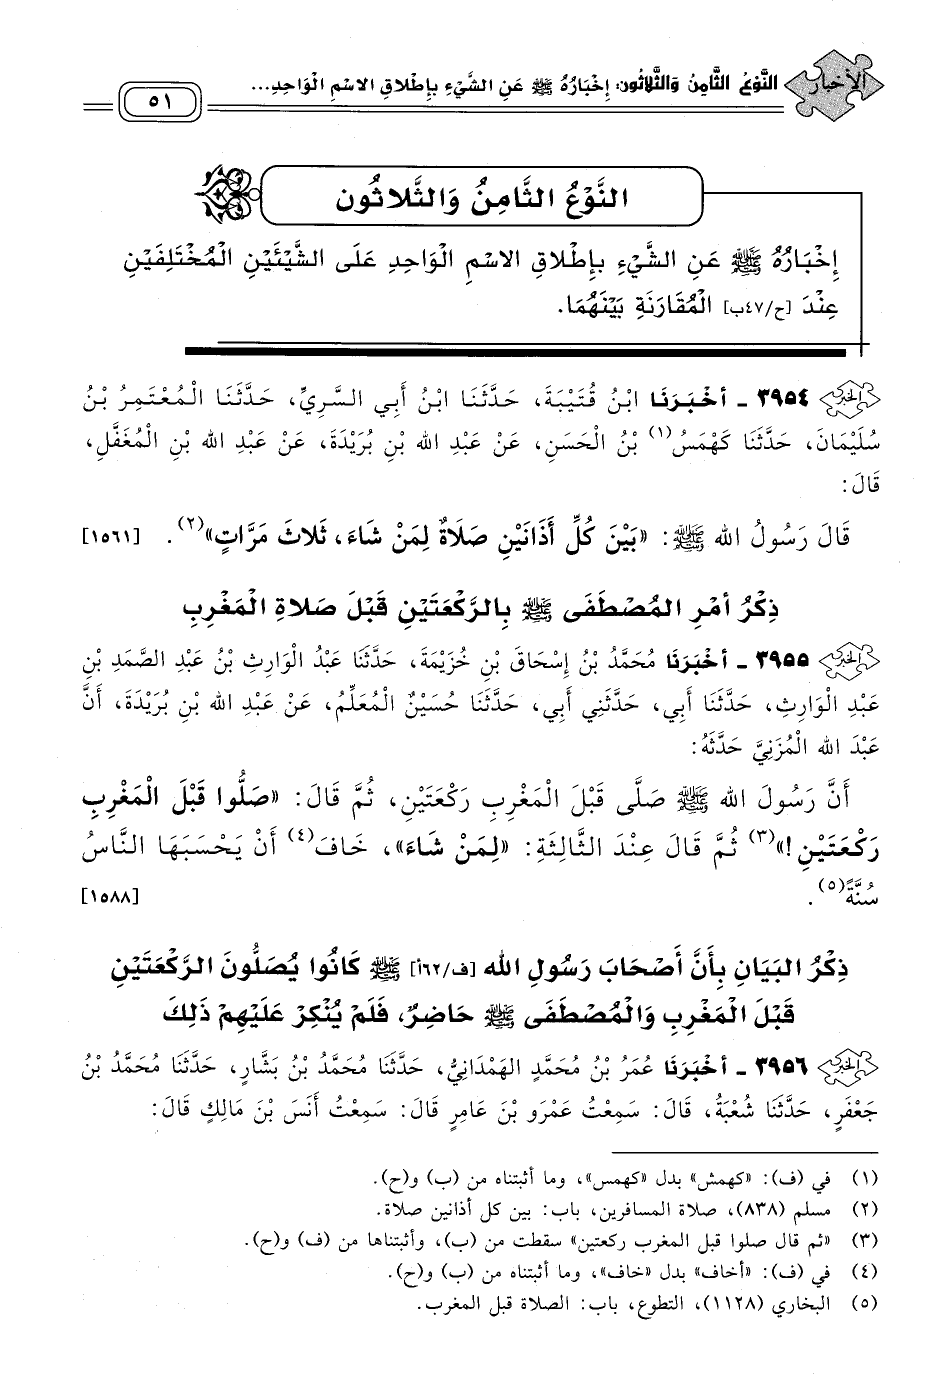 الأخبار
النَّوْعُ الثَّامِنُ وَالثَّلَاثُونَ: إِخْبَارُهُ ﷺ عَنِ الشَّيْءِ بِإِطْلَاقِ الاسْمِ الْوَاحِدِ...
٥١
النَّوْعُ الثَّامِنُ وَالثَّلَاثُون
إِخْبَارُهُ ﷺ عَنِ الشَّيْءِ بِإِطْلَاقِ الاسْمِ الْوَاحِدِ عَلَى الشَّيْئَيْنِ الْمُخْتَلِفَيْنِ
عِنْدَ [ح/٤٧ب] الْمُقَارَنَةِ بَيْنَهُمَا.
٣٩٥٤ ـ أَخْبَرَنَا ابْنُ قُتَيْبَةَ، حَدَّثَنَا ابْنُ أَبِي السَّرِيِّ، حَدَّثَنَا الْمُعْتَمِرُ بْنُ
سُلَيْمَانَ، حَدَّثَنَا كَهْمَسُ(١) بْنُ الْحَسَنِ، عَنْ عَبْدِ الله بْنِ بُرَيْدَةَ، عَنْ عَبْدِ الله بْنِ الْمُغَفَّلِ،
قَالَ:
قَالَ رَسُولُ الله ﷺ: «بَيْنَ كُلِّ أَذَانَيْنِ صَلَاةٌ لِمَنْ شَاءَ، ثَلَاثَ مَرَّاتٍ»(٢). [١٥٦١]
ذِكْرُ أَمْرِ الْمُصْطَفَى ﷺ بِالرَّكْعَتَيْنِ قَبْلَ صَلَاةِ الْمَغْرِبِ
٣٩٥٥ ـ أَخْبَرَنَا مُحَمَّدُ بْنُ إِسْحَاقَ بْنِ خُزَيْمَةَ، حَدَّثَنَا عَبْدُ الْوَارِثِ بْنُ عَبْدِ الصَّمَدِ بْنِ
عَبْدِ الْوَارِثِ، حَدَّثَنَا أَبِي، حَدَّثَنِي أَبِي، حَدَّثَنَا حُسَيْنٌ الْمُعَلِّمُ، عَنْ عَبْدِ الله بْنِ بُرَيْدَةَ، أَنَّ
عَبْدَ الله الْمُزَنِيَّ حَدَّثَهُ:
أَنَّ رَسُولَ الله ﷺ صَلَّى قَبْلَ الْمَغْرِبِ رَكْعَتَيْنِ، ثُمَّ قَالَ: «صَلُّوا قَبْلَ الْمَغْرِبِ
رَكْعَتَيْنِ!»(٣) ثُمَّ قَالَ عِنْدَ الثَّالِثَةِ: «لِمَنْ شَاءَ»، خَافَ(٤) أَنْ يَحْسَبَهَا النَّاسُ
سُنَّةً(٥). [١٥٨٨]
ذِكْرُ الْبَيَانِ بِأَنَّ أَصْحَابَ رَسُولِ الله [ف/٦٢أ] ﷺ كَانُوا يُصَلُّونَ الرَّكْعَتَيْنِ
قَبْلَ الْمَغْرِبِ وَالْمُصْطَفَى ﷺ حَاضِرٌ، فَلَمْ يُنْكِرْ عَلَيْهِمْ ذَلِكَ
٣٩٥٦ ـ أَخْبَرَنَا عُمَرُ بْنُ مُحَمَّدٍ الهَمْدَانِيُّ، حَدَّثَنَا مُحَمَّدُ بْنُ بَشَّارٍ، حَدَّثَنَا مُحَمَّدُ بْنُ
جَعْفَرٍ، حَدَّثَنَا شُعْبَةُ، قَالَ: سَمِعْتُ عَمْرَو بْنَ عَامِرٍ قَالَ: سَمِعْتُ أَنَسَ بْنَ مَالِكٍ قَالَ:
(١) في (ف): «كهمش» بدل «كهمس»، وما أثبتناه من (ب) و(ح).
(٢) مسلم (٨٣٨)، صلاة المسافرين، باب: بين كل أذانين صلاة.
(٣) «ثم قال صلوا قبل المغرب ركعتين» سقطت من (ب)، وأثبتناها من (ف) و(ح).
(٤) في (ف): «أخاف» بدل «خاف»، وما أثبتناه من (ب) و(ح).
(٥) البخاري (١١٢٨)، التطوع، باب: الصلاة قبل المغرب.